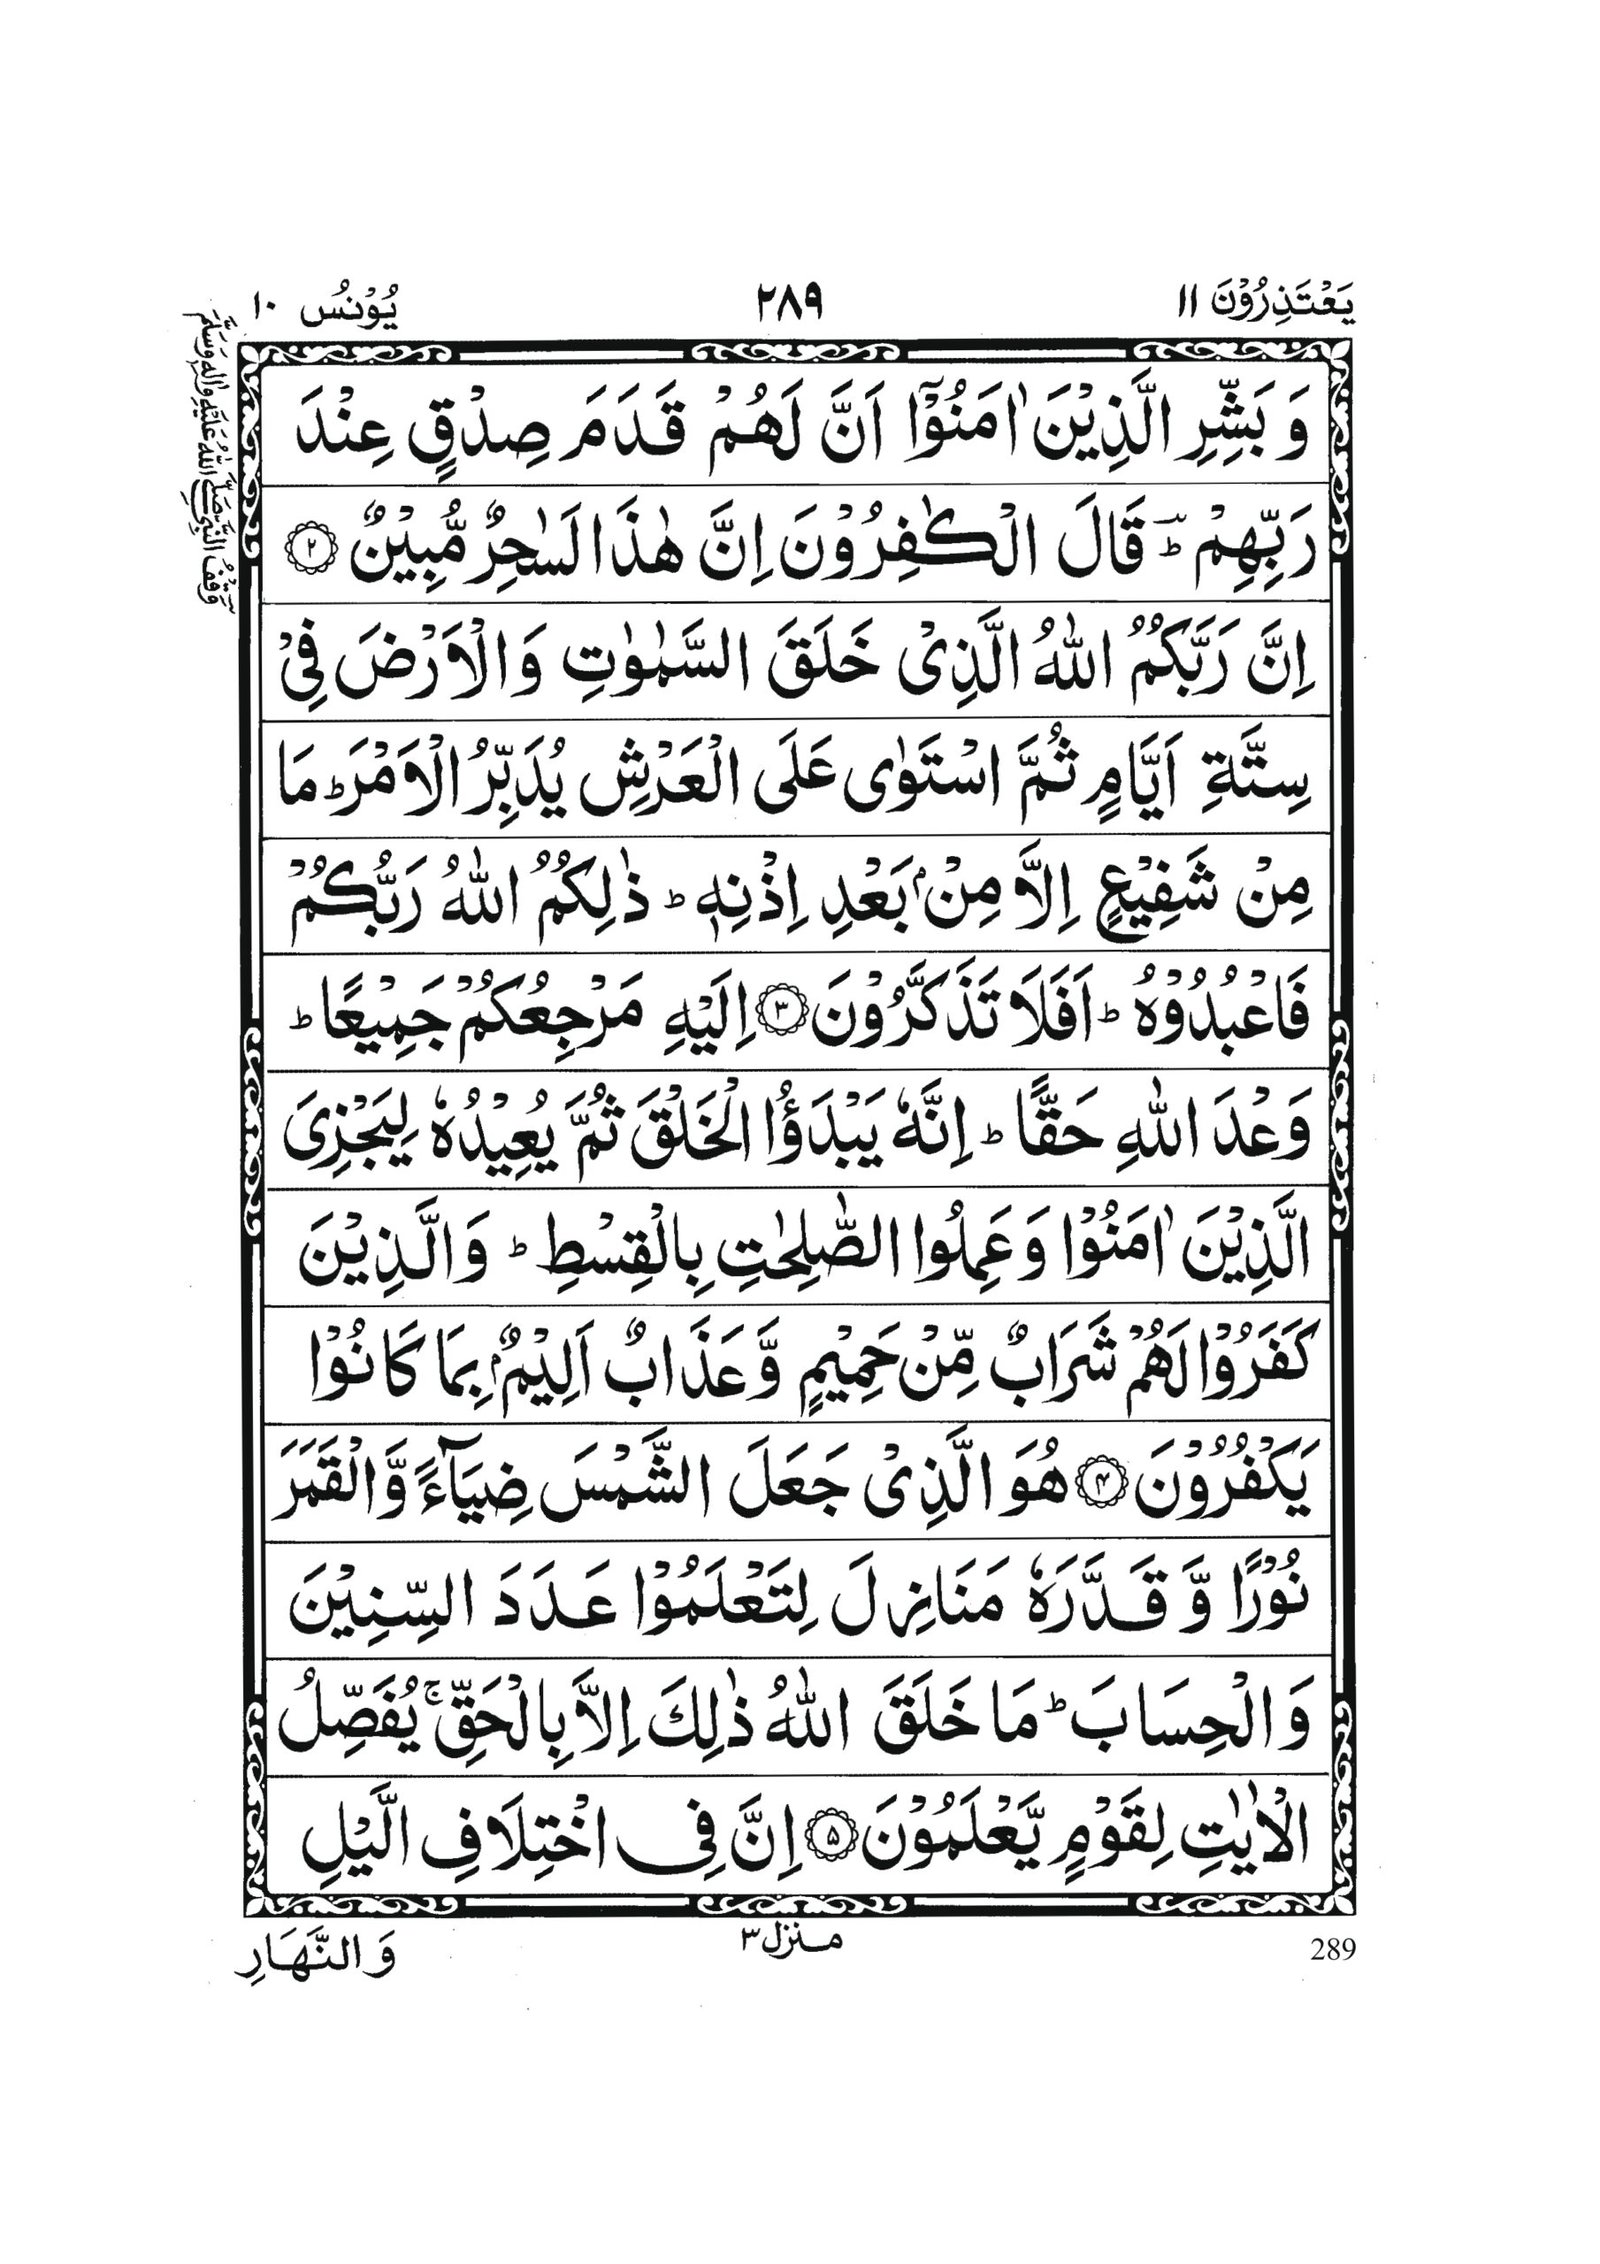 يَعْتَذِرُوْنَ ۱۱
۲۸۹
يُوْنُسُ ۱۰
وَقْفُ النَّبِيِّ صَلَّى اللّٰهُ عَلَيْهِ وَاٰلِهٖ وَسَلَّمَ
وَ بَشِّرِ الَّذِيْنَ اٰمَنُوْۤا اَنَّ لَهُمْ قَدَمَ صِدْقٍ عِنْدَ
رَبِّهِمْ ؕؔ قَالَ الْكٰفِرُوْنَ اِنَّ هٰذَا لَسٰحِرٌ مُّبِيْنٌ ۲
اِنَّ رَبَّكُمُ اللّٰهُ الَّذِىْ خَلَقَ السَّمٰوٰتِ وَالْاَرْضَ فِىْ
سِتَّةِ اَيَّامٍ ثُمَّ اسْتَوٰى عَلَى الْعَرْشِ يُدَبِّرُ الْاَمْرَ ؕ مَا
مِنْ شَفِيْعٍ اِلَّا مِنْۢ بَعْدِ اِذْنِهٖ ؕ ذٰلِكُمُ اللّٰهُ رَبُّكُمْ
فَاعْبُدُوْهُ ؕ اَفَلَا تَذَكَّرُوْنَ ۳ اِلَيْهِ مَرْجِعُكُمْ جَمِيْعًا ؕ
وَعْدَ اللّٰهِ حَقًّا ؕ اِنَّهٗ يَبْدَؤُا الْخَلْقَ ثُمَّ يُعِيْدُهٗ لِيَجْزِىَ
الَّذِيْنَ اٰمَنُوْا وَ عَمِلُوا الصّٰلِحٰتِ بِالْقِسْطِ ؕ وَالَّذِيْنَ
كَفَرُوْا لَهُمْ شَرَابٌ مِّنْ حَمِيْمٍ وَّ عَذَابٌ اَلِيْمٌۢ بِمَا كَانُوْا
يَكْفُرُوْنَ ۴ هُوَ الَّذِىْ جَعَلَ الشَّمْسَ ضِيَآءً وَّالْقَمَرَ
نُوْرًا وَّ قَدَّرَهٗ مَنَازِلَ لِتَعْلَمُوْا عَدَدَ السِّنِيْنَ
وَالْحِسَابَ ؕ مَا خَلَقَ اللّٰهُ ذٰلِكَ اِلَّا بِالْحَقِّ ۚ يُفَصِّلُ
الْاٰيٰتِ لِقَوْمٍ يَّعْلَمُوْنَ ۵ اِنَّ فِى اخْتِلَافِ الَّيْلِ
289
منزل ۳
وَالنَّهَارِ